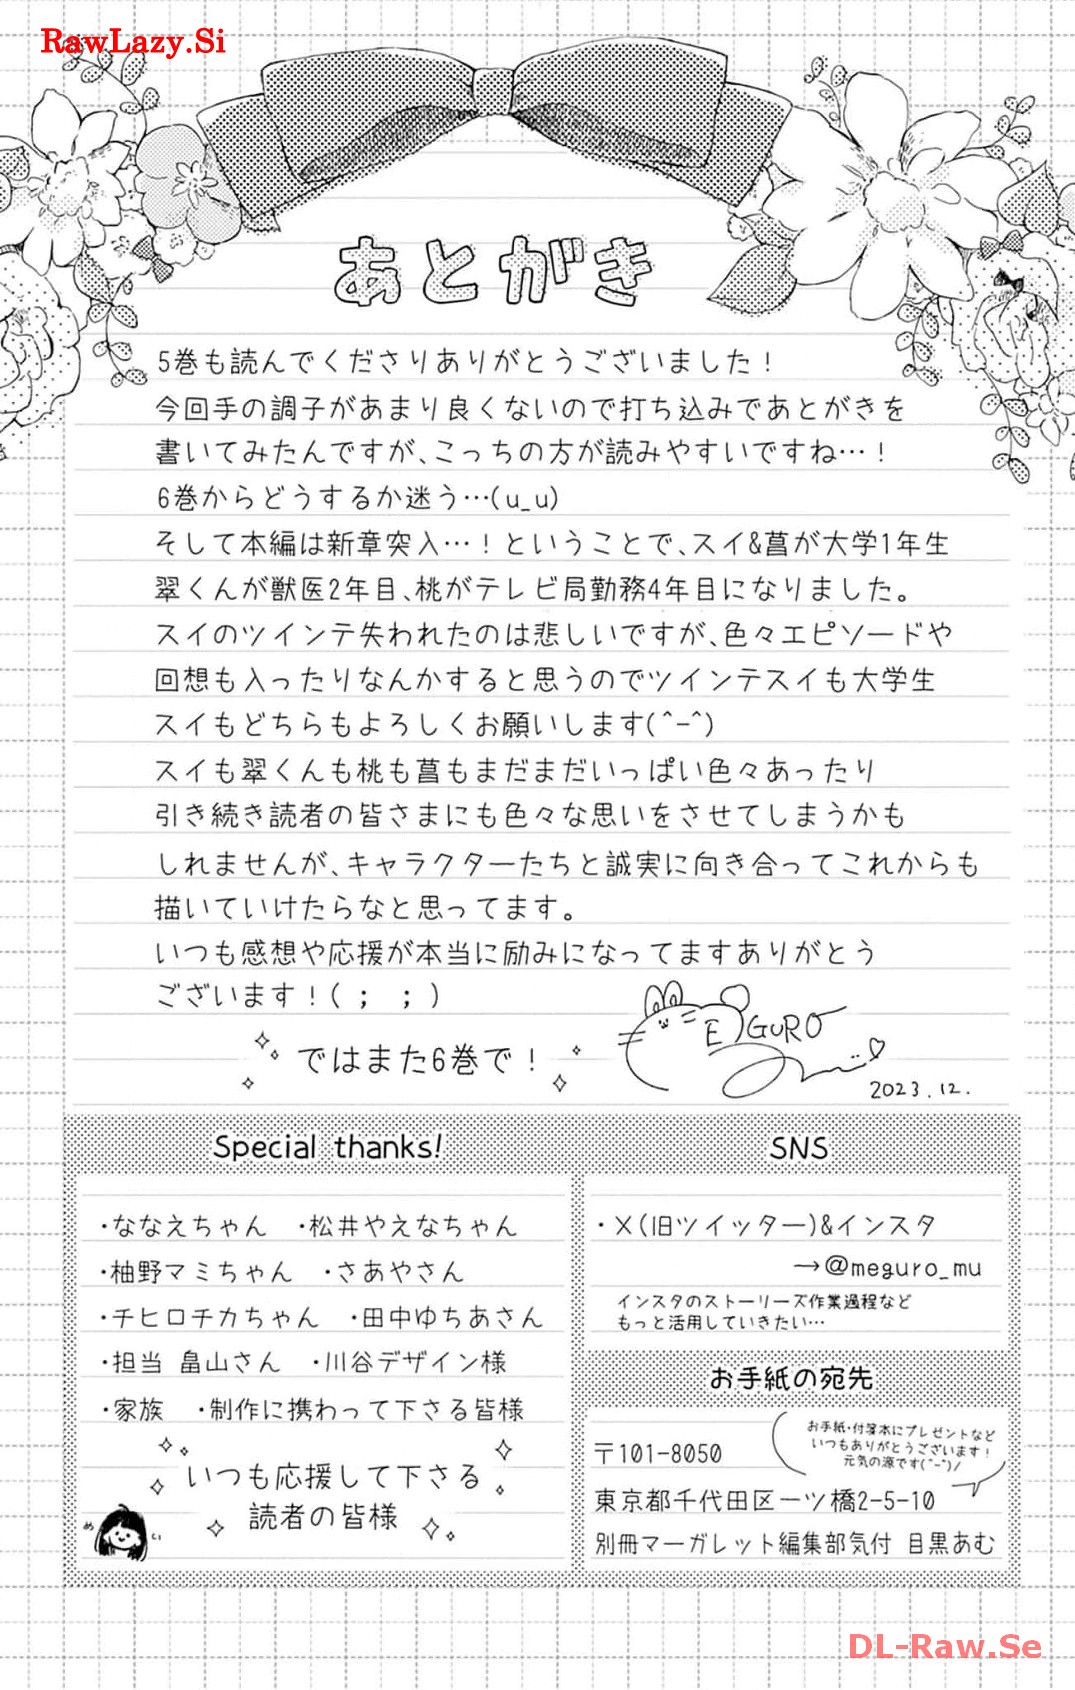 RawLazy.Si
あとがき
5巻も読んでくださりありがとうございました！
今回手の調子があまり良くないので打ち込みであとがきを
書いてみたんですが、こっちの方が読みやすいですね…！
6巻からどうするか迷う…(u_u)
そして本編は新章突入…！ということで、スイ&菖が大学1年生
翠くんが獣医2年目、桃がテレビ局勤務4年目になりました。
スイのツインテ失われたのは悲しいですが、色々エピソードや
回想も入ったりなんかすると思うのでツインテスイも大学生
スイもどちらもよろしくお願いします(^-^)
スイも翠くんも桃も菖もまだまだいっぱい色々あったり
引き続き読者の皆さまにも色々な思いをさせてしまうかも
しれませんが、キャラクターたちと誠実に向き合ってこれからも
描いていけたらなと思ってます。
いつも感想や応援が本当に励みになってますありがとう
ございます！( ; ; )
ではまた6巻で！
MEGURO
2023.12.
Special thanks!
・ななえちゃん ・松井やえなちゃん
・柚野マミちゃん ・さあやさん
・チヒロチカちゃん ・田中ゆちあさん
・担当 畠山さん ・川谷デザイン様
・家族 ・制作に携わって下さる皆様
いつも応援して下さる
読者の皆様
めい
SNS
・X(旧ツイッター)&インスタ
→@meguro_mu
インスタのストーリーズ作業過程など
もっと活用していきたい…
お手紙の宛先
お手紙・付箋本にプレゼントなど
いつもありがとうございます！
元気の源です(^-^)/
〒101-8050
東京都千代田区一ツ橋2-5-10
別冊マーガレット編集部気付 目黒あむ
DL-Raw.Se